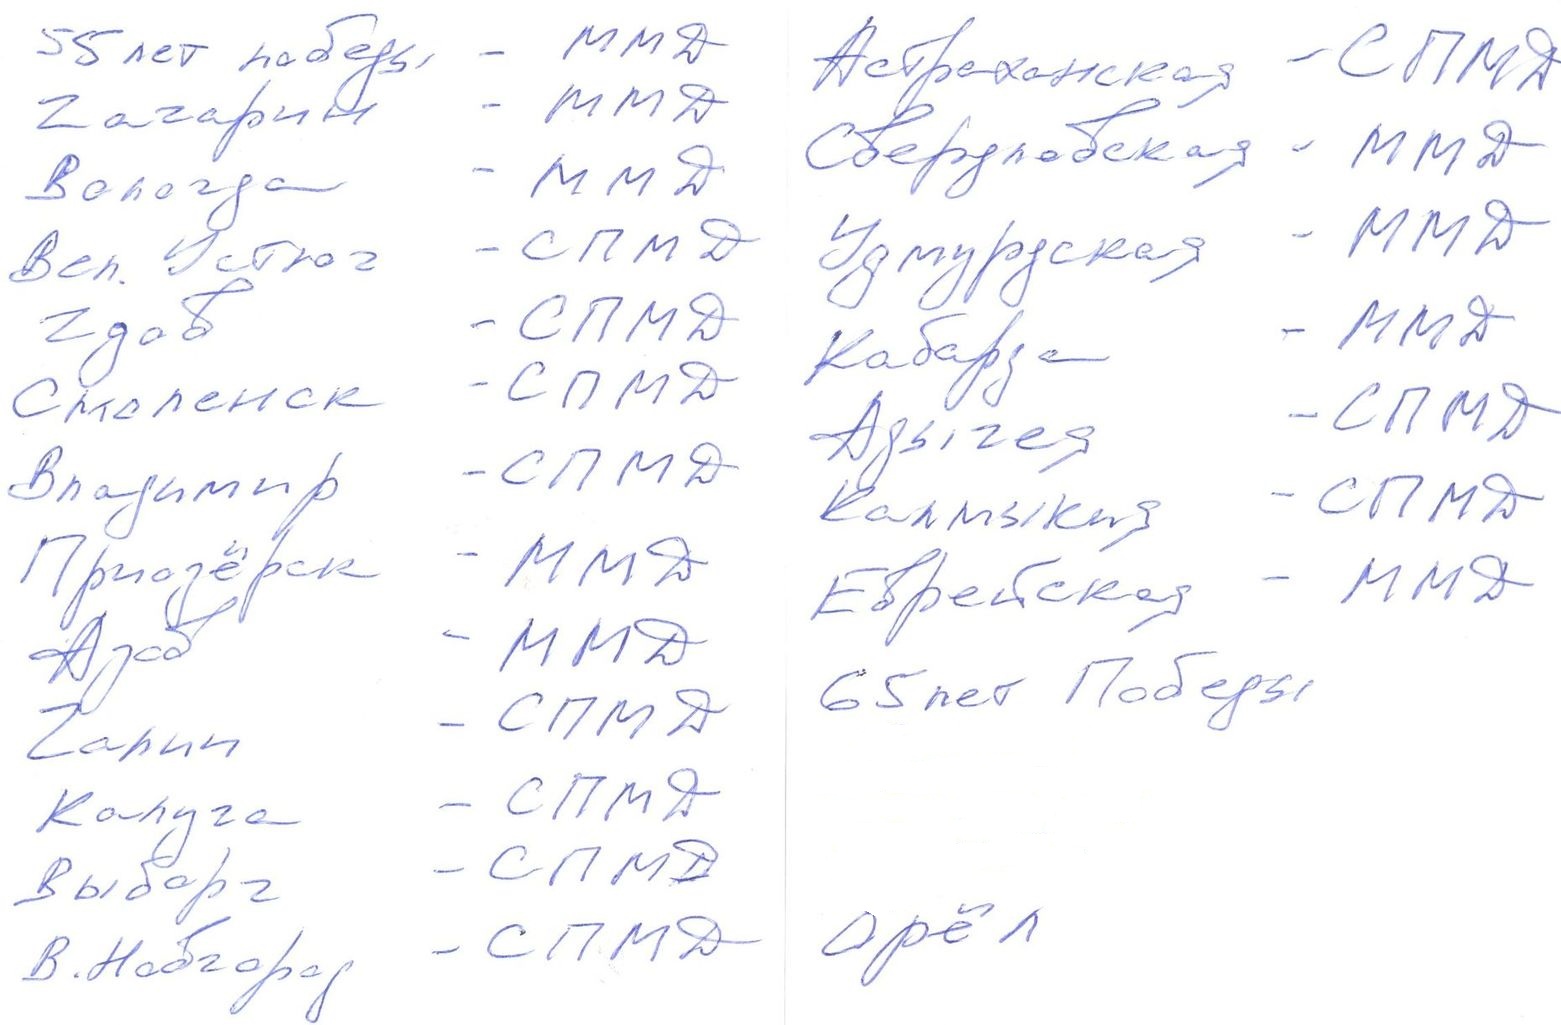 55 лет победы - ММД
Гагарин - ММД
Вологда - ММД
Вел. Устюг - СПМД
Гдов - СПМД
Смоленск - СПМД
Владимир - СПМД
Приозёрск - ММД
Азов - ММД
Галич - СПМД
Калуга - СПМД
Выборг - СПМД
В. Новгород - СПМД
Астраханская - СПМД
Свердловская - ММД
Удмурдская - ММД
Кабарда - ММД
Адыгея - СПМД
Калмыкия - СПМД
Еврейская - ММД
65 лет Победы
Орёл